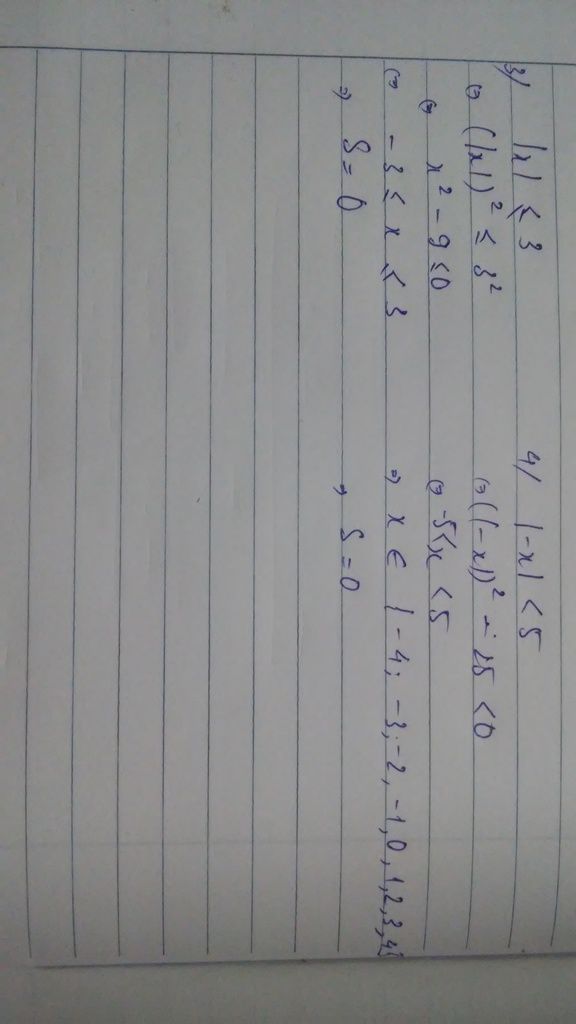 3/ |x| ≤ 3
⇔ (|x|)² ≤ 3²
⇔ x² - 9 ≤ 0
⇔ -3 ≤ x ≤ 3
⇒ S = 0
4/ |-x| < 5
⇔ (|-x|)² - 25 < 0
⇔ -5 < x < 5
⇒ x ∈ { -4; -3; -2, -1, 0, 1, 2, 3, 4}
⇒ S = 0